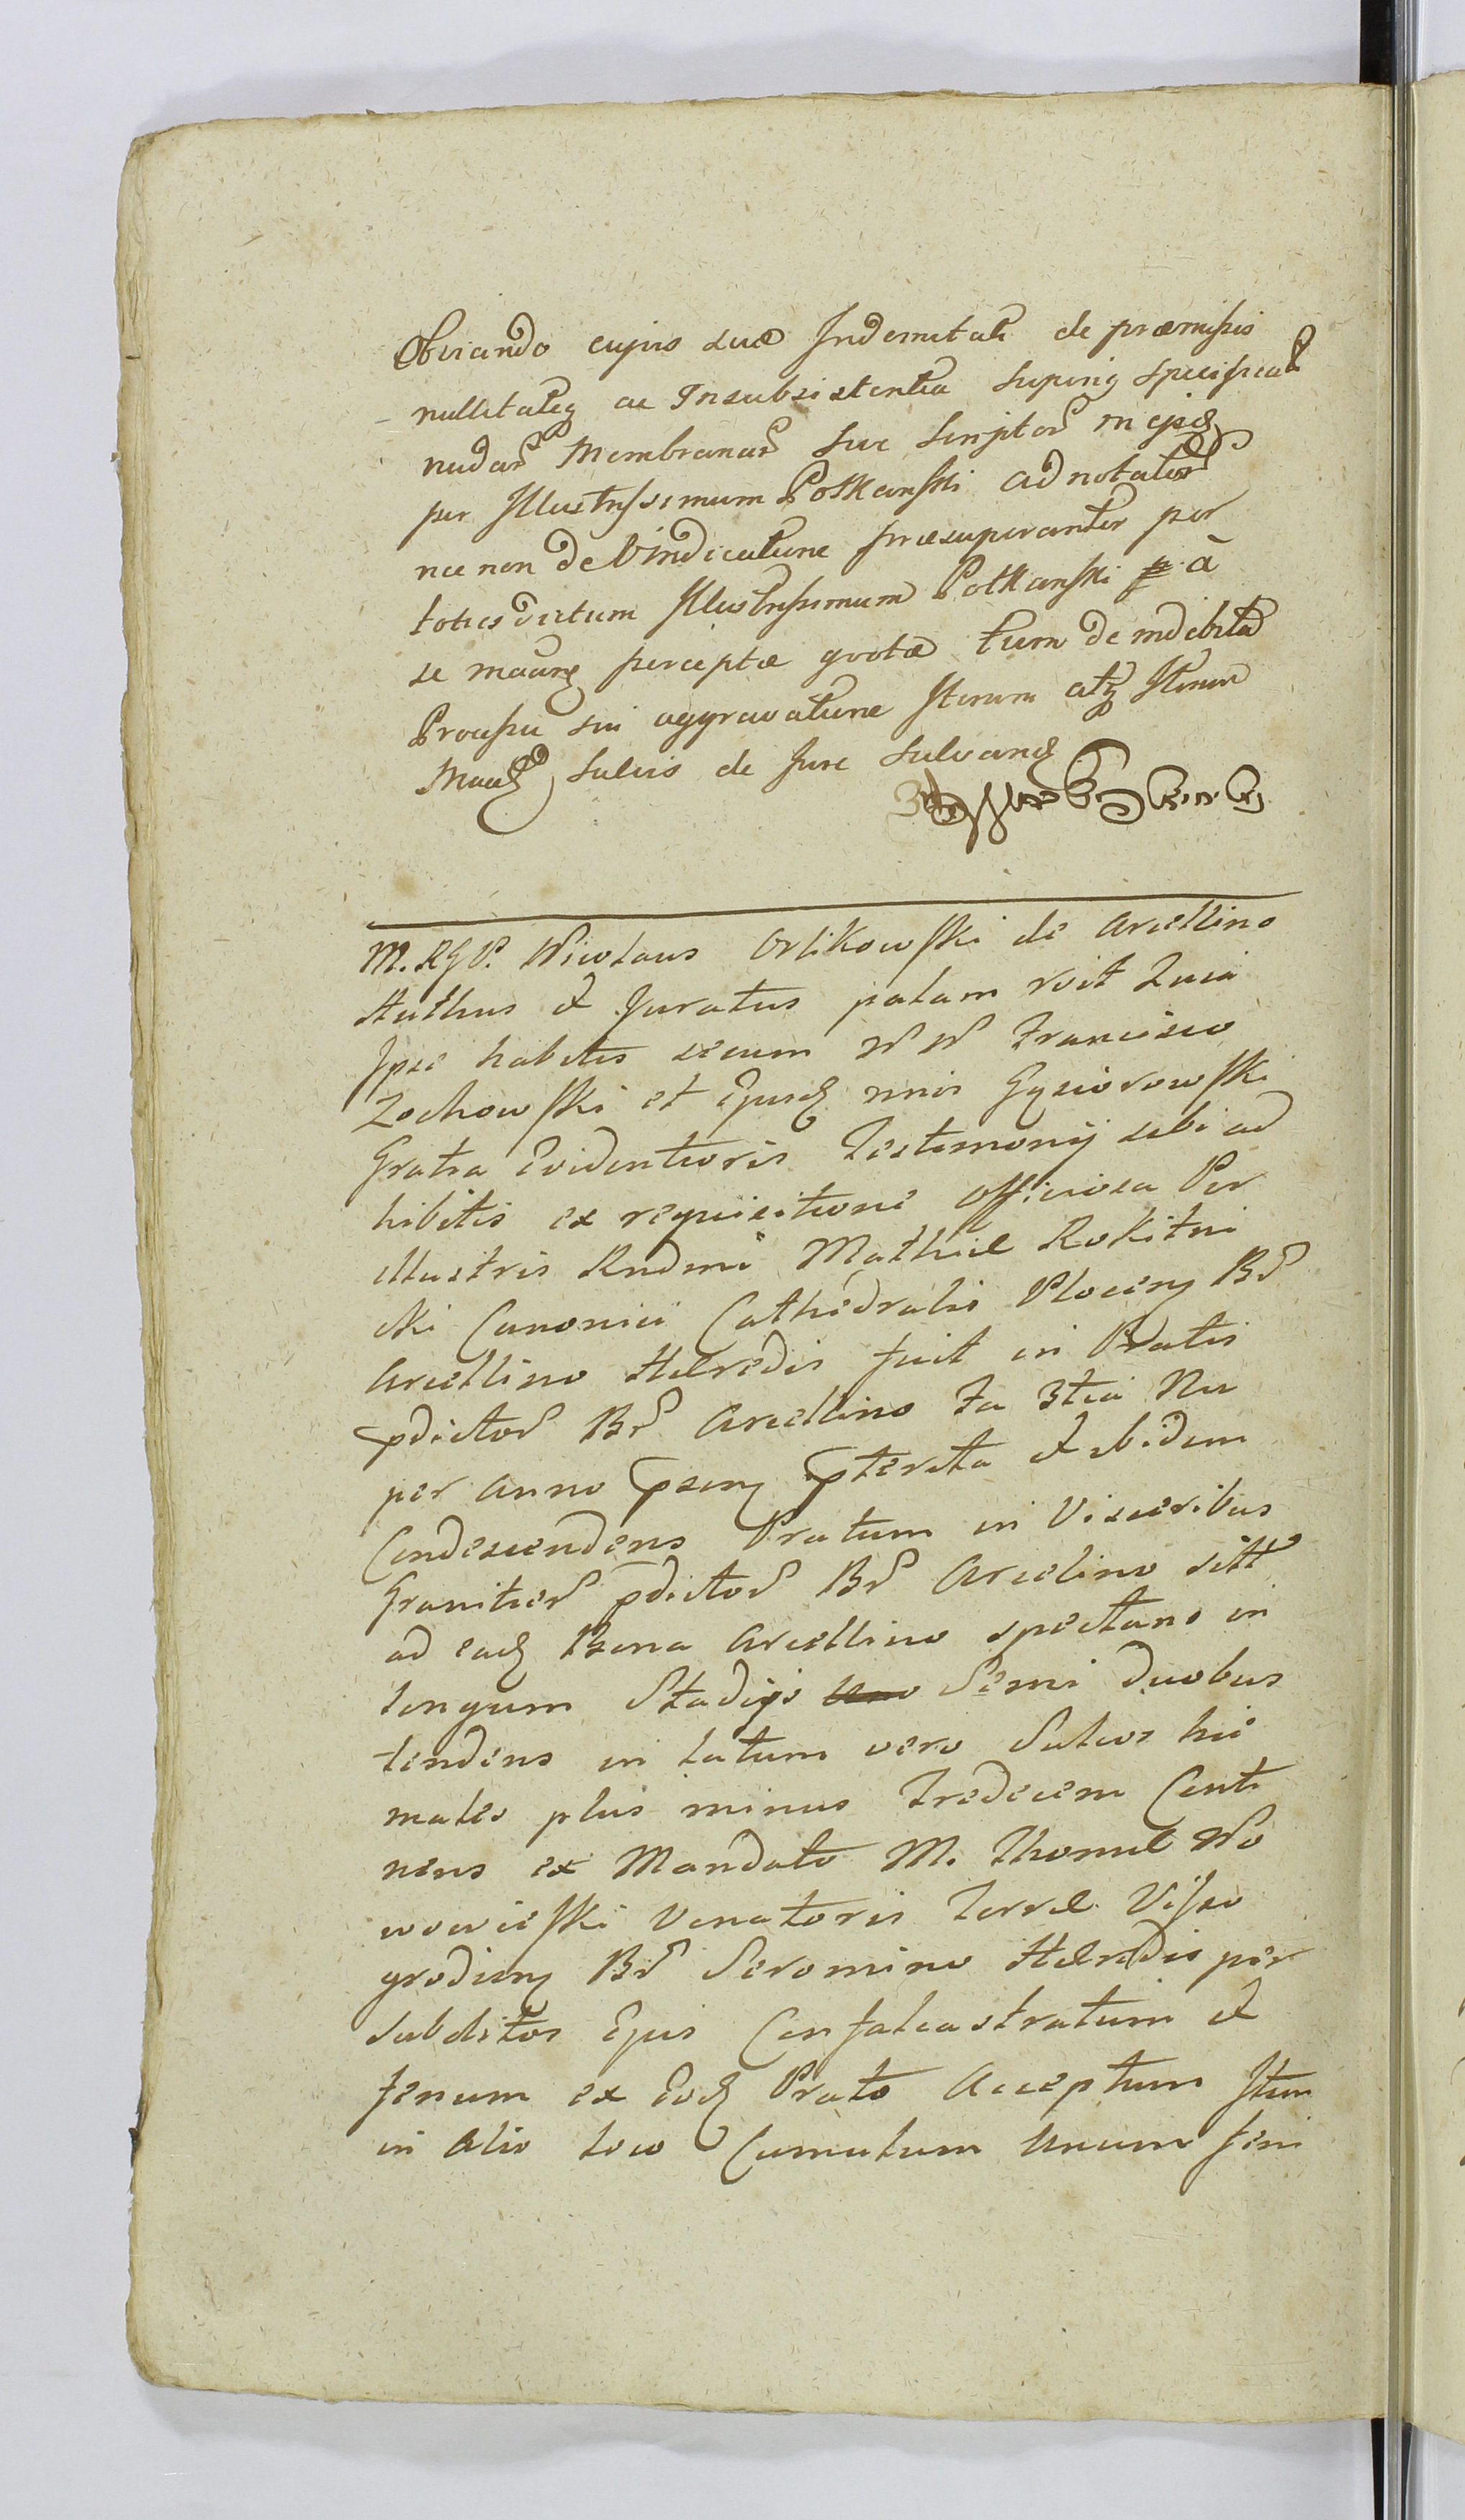 Obviando cujus suæ Indemnitati de præmissis
nullitateq ac Insubsistentia superiq specificat
nudar Membranar sive scriptor in ejsd
per Illustrissimum Potkanski adnotator
nec non de Vindicatione præsuperanter per
toties dictum Illustrissimum Potkanski à
se maang perceptæ quotæ tum de indebita
Processu sui aggravatione Iterum atq Iterum
Mand salvis de Jure salvand
M. RGP. Nicolaus Orlikowski de Arcellino
Authus et Juratus palam rvit Quia
Ipse habitis secum NN Francisco
Zochowski et Ejusd nnis Gąsiorowski
Gratia Evidentioris Testimonij sibi ad
hibitis ex requisitione officiosa Per
illustris Rndmi Mathiæ Rokitni
cki Canonici Cathedralis Plocen Br
Arcellino Hæredis fuit in Pratis
pdictor Br Arcellino Fa 3tia Nu
per anno psen pterita et ibidem
Condescendens Pratum in Visceribus
Granitier pdictor Br Arcelino sitt
ad ead Bona Arcellino spectans in
longum Stadijs Uno Semi duobus
tendens in latum vero Sulcos hie
males plus minus Tredecem Conti
nens ex Mandato M. Thomæ No
wowieski Venatoris Terræ Visso
grodien Br Seromino Hæredis per
subditos Ejus Confalcastratum et
fenum ex Eod Prato Acceptum Item
in Alio loco Cumulum Unum feni